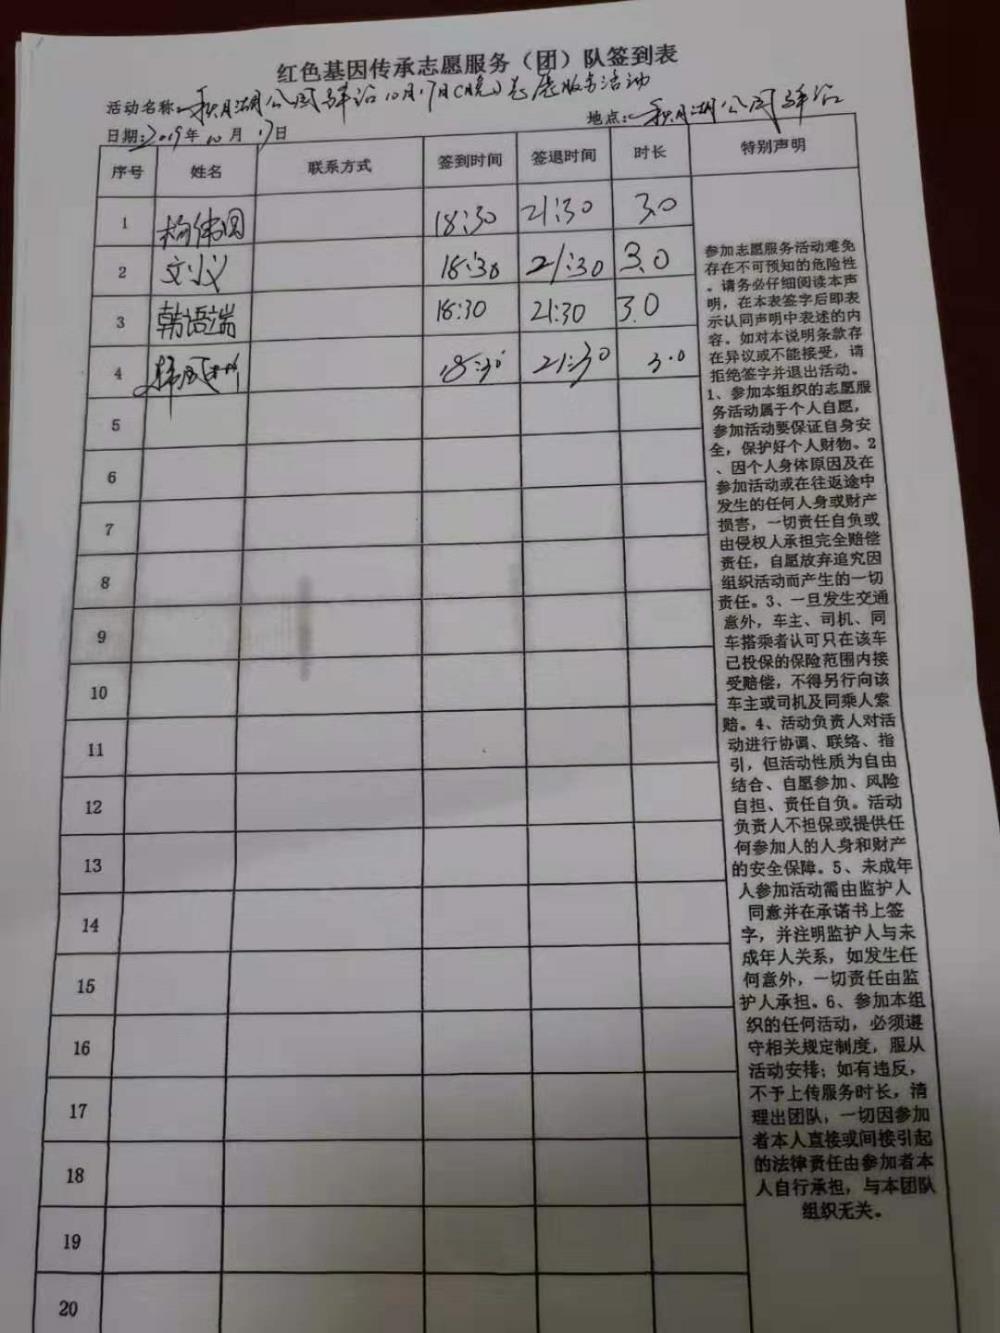 红色基因传承志愿服务（团）队签到表
活动名称：秋月湖公园驿站10月17日（晚）志愿服务活动
日期：2019年10月17日 地点：秋月湖公园驿站
序号 姓名 联系方式 签到时间 签退时间 时长 特别声明
1 杨伟圆 18:30 21:30 3.0
2 文小义 18:30 21:30 3.0
3 韩语端 18:30 21:30 3.0
4 18:30 21:30 3.0
5
6
7
8
9
10
11
12
13
14
15
16
17
18
19
20
参加志愿服务活动难免
存在不可预知的危险性
。请务必仔细阅读本声
明，在本表签字后即表
示认同声明中表述的内
容。如对本说明条款存
在异议或不能接受，请
拒绝签字并退出活动。
1、参加本组织的志愿服
务活动属于个人自愿，
参加活动要保证自身安
全，保护好个人财物。2
、因个人身体原因及在
参加活动或在往返途中
发生的任何人身或财产
损害，一切责任自负或
由侵权人承担完全赔偿
责任，自愿放弃追究因
组织活动而产生的一切
责任。3、一旦发生交通
意外，车主、司机、同
车搭乘者认可只在该车
已投保的保险范围内接
受赔偿，不得另行向该
车主或司机及同乘人索
赔。4、活动负责人对活
动进行协调、联络、指
引，但活动性质为自由
结合、自愿参加、风险
自担、责任自负。活动
负责人不担保或提供任
何参加人的人身和财产
的安全保障。5、未成年
人参加活动需由监护人
同意并在承诺书上签
字，并注明监护人与未
成年人关系，如发生任
何意外，一切责任由监
护人承担。6、参加本组
织的任何活动，必须遵
守相关规定制度，服从
活动安排；如有违反，
不予上传服务时长，清
理出团队，一切因参加
者本人直接或间接引起
的法律责任由参加者本
人自行承担，与本团队
组织无关。